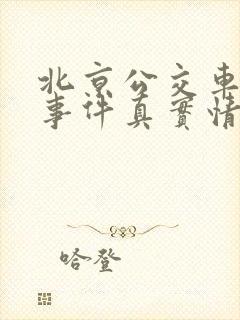 北京公交車
事件真實情
哈登